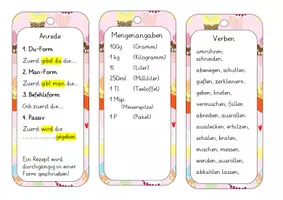 Anrede
1. Du-Form
Zuerst gibst du die...
2. Man-Form
Zuerst gibt man die...
3. Befehlsform
Gib zuerst die...
4. Passiv
Zuerst wird die
..................gegeben.
Ein Rezept wird
durchgängig in einer
Form geschrieben!
Mengenangaben
100g (Gramm)
1 kg (Kilogramm)
1l (Liter)
250ml (Milliliter)
1 TL (Teelöffel)
1 Msp.
(Messerspitze)
1 P (Paket)
Verben
umrühren,
schneiden,
abwiegen, schütten,
gießen, zerkleinern,
geben, kneten,
vermischen, füllen
abreiben, ausrollen
ausstecken, erhitzen,
schälen, braten,
machen, messen,
wenden, ausrollen,
abkühlen lassen,